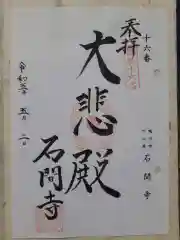 十六番
奉拝
大悲殿
石間寺
令和三年五月二日
石間寺